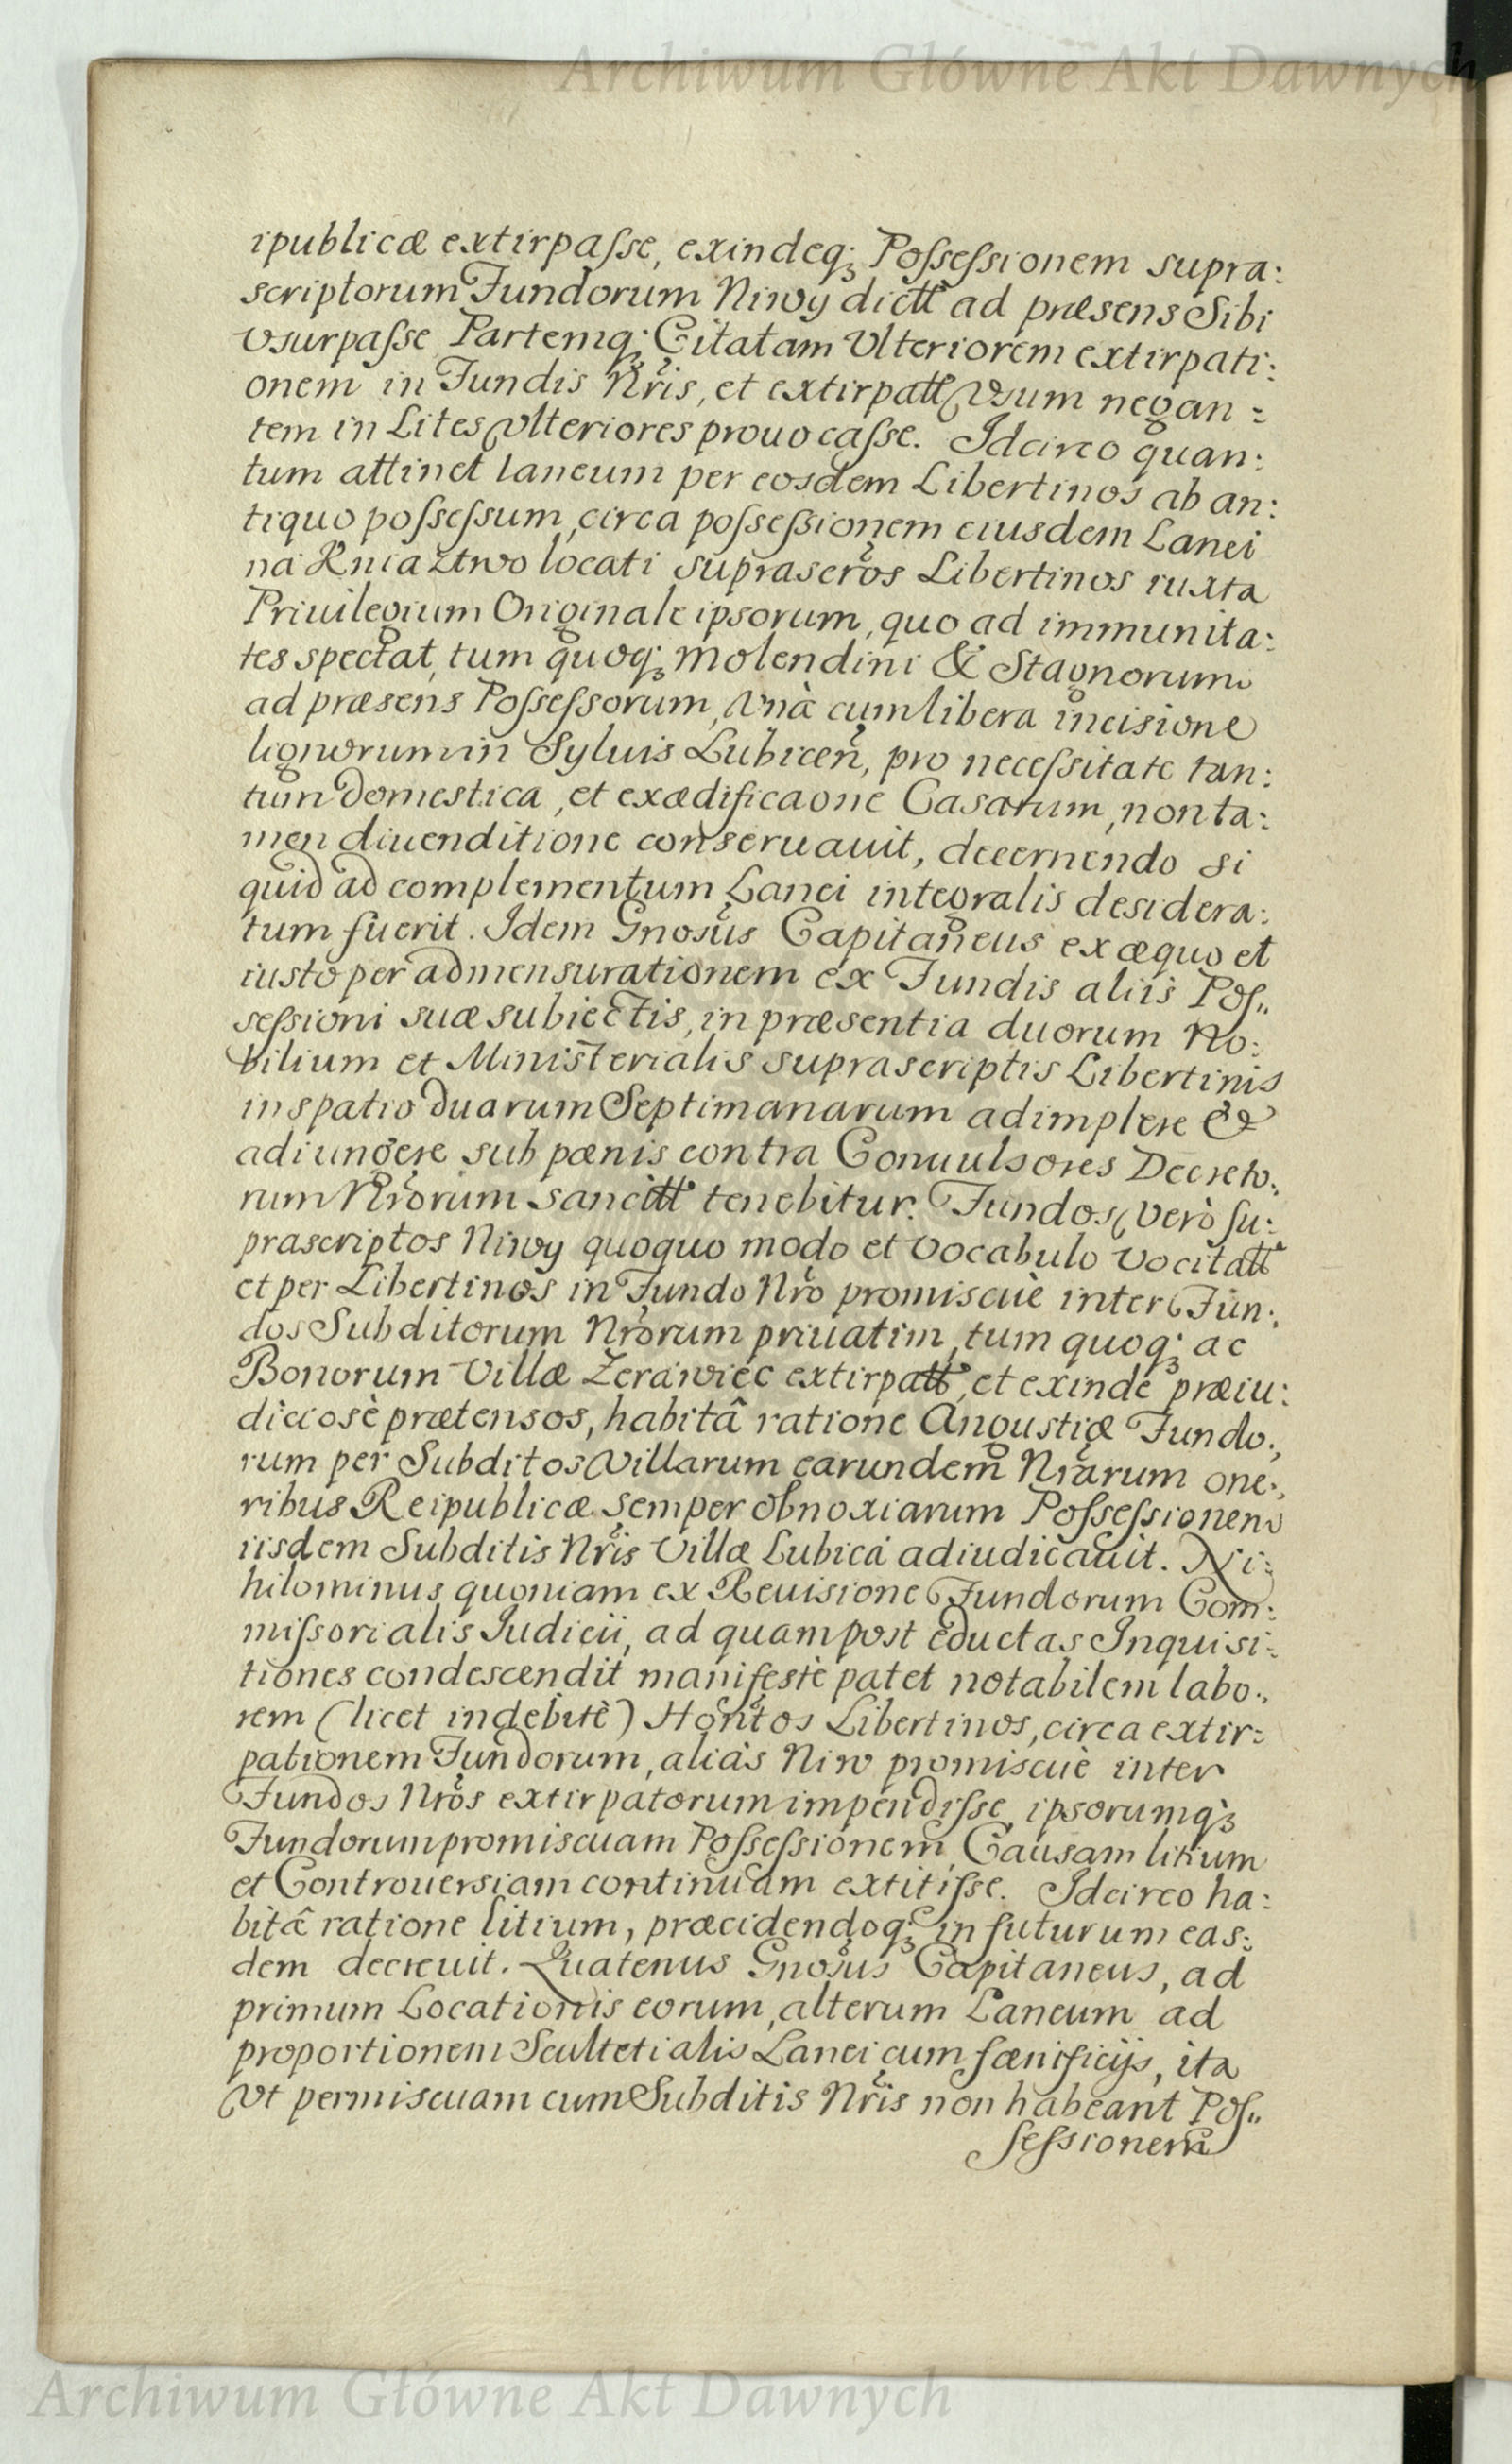 Archiwum Główne Akt Dawnych
ipublicæ extirpaſse, exindeq; Poſseſsionem supra:
scriptorum Fundorum Niwy dictt ad præsens Sibi
vsurpaſse Partemq; Citatam Vlteriorem extirpati:
onem in Fundis Nris, et extirpatt Vsum negan:
tem in Lites vlteriores prouocaſse. Idcirco quan:
tum attinet laneum per eosdem Libertinos ab an:
tiquo poſseſsum, circa poſseſsionem eiusdem Lanei
na Kniaztwo locati suprascros Libertinos iuxta
Priuilegium Originale ipsorum, quo ad immunita:
tes spectat, tum quoq; molendini & Stagnorum
ad præsens Poſseſsorum, Vnà cum libera incisione
lignorum in Syluis Lubicen̄, pro neceſsitate tan:
tum domestica, et exædificaone Casarum, non ta:
men diuenditione conseruauit, decernendo si
quid ad complementum Lanei integralis desidera:
tum fuerit. Idem Gnosus Capitaneus ex æquo et
iusto per admensurationem ex Fundis aliis Poſ„
seſsioni suæ subiectis, in præsentia duorum No:
bilium et Ministerialis suprascriptis Libertinis
in spatio duarum Septimanarum adimplere &
adiungere sub pœnis contra Conuulsores Decreto:
rum Nrorum sancitt tenebitur. Fundos verò ſu:
prascriptos Niwy quoquo modo et Vocabulo Vocitatt
et per Libertinos in Fundo Nro promiscuè inter Fun:
dos Subditorum Nrorum priuatim, tum quoq; ac
Bonorum Villæ Zerawiec extirpatt, et exinde præiu:
diciosè prætensos, habitâ ratione Angustiæ Fundo:
rum per Subditos Villarum earundem Nrarum one:
ribus Reipublicæ semper obnoxiarum Poſseſsionem
iisdem Subditis Nris Villæ Lubica adiudicauit. Ni:
hilominus quoniam ex Reuisione Fundorum Com:
miſsorialis Iudicii, ad quam post eductas Inquisi:
tiones condescendit manifestè patet notabilem labo:
rem (licet indebitè) Hontos Libertinos, circa extir:
pationem Fundorum, aliàs Niw promiscuè inter
Fundos Nros extirpatorum impendiſse, ipsorumq;
Fundorum promiscuam Poſseſsionem, Causam litium
et Controuersiam continuam extitiſse. Idcirco ha:
bitâ ratione litium, præcidendoq; in futurum eas:
dem decreuit. Quatenus Gnosus Capitaneus, ad
primum Locationis eorum, alterum Laneum ad
proportionem Scultetialis Lanei cum fœnificijs, ita
Vt permiscuam cum Subditis Nris non habeant Poſ„
ſeſsionem
Archiwum Główne Akt Dawnych